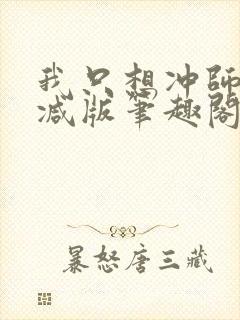 我只想冲师
减版笔趣阁
暴怒唐三藏